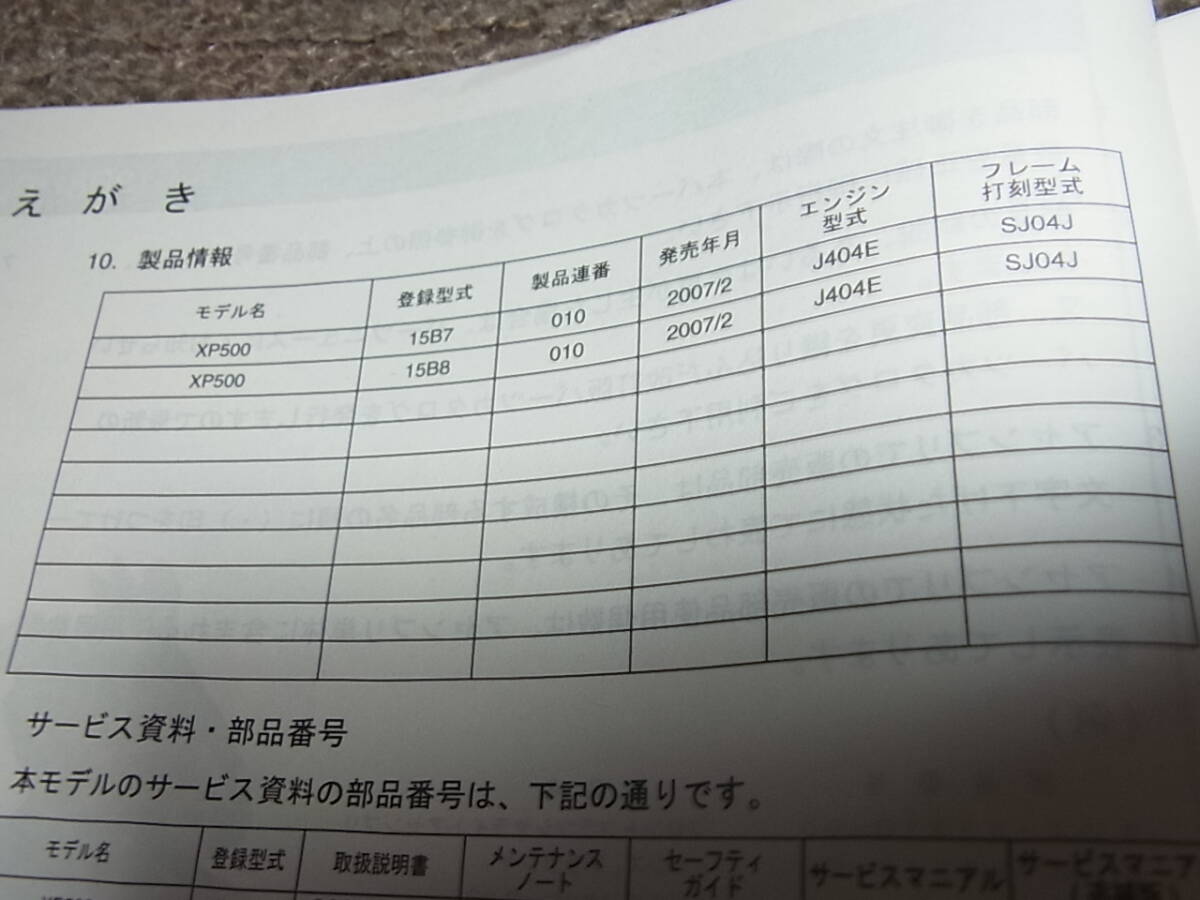 えがき
10. 製品情報
モデル名 登録型式 製品連番 発売年月 エンジン型式 フレーム打刻型式
XP500 15B7 010 2007/2 J404E SJ04J
XP500 15B8 010 2007/2 J404E SJ04J
サービス資料・部品番号
本モデルのサービス資料の部品番号は、下記の通りです。
モデル名 登録型式 取扱説明書 メンテナンスノート セーフティガイド サービスマニュアル サービスマニュア